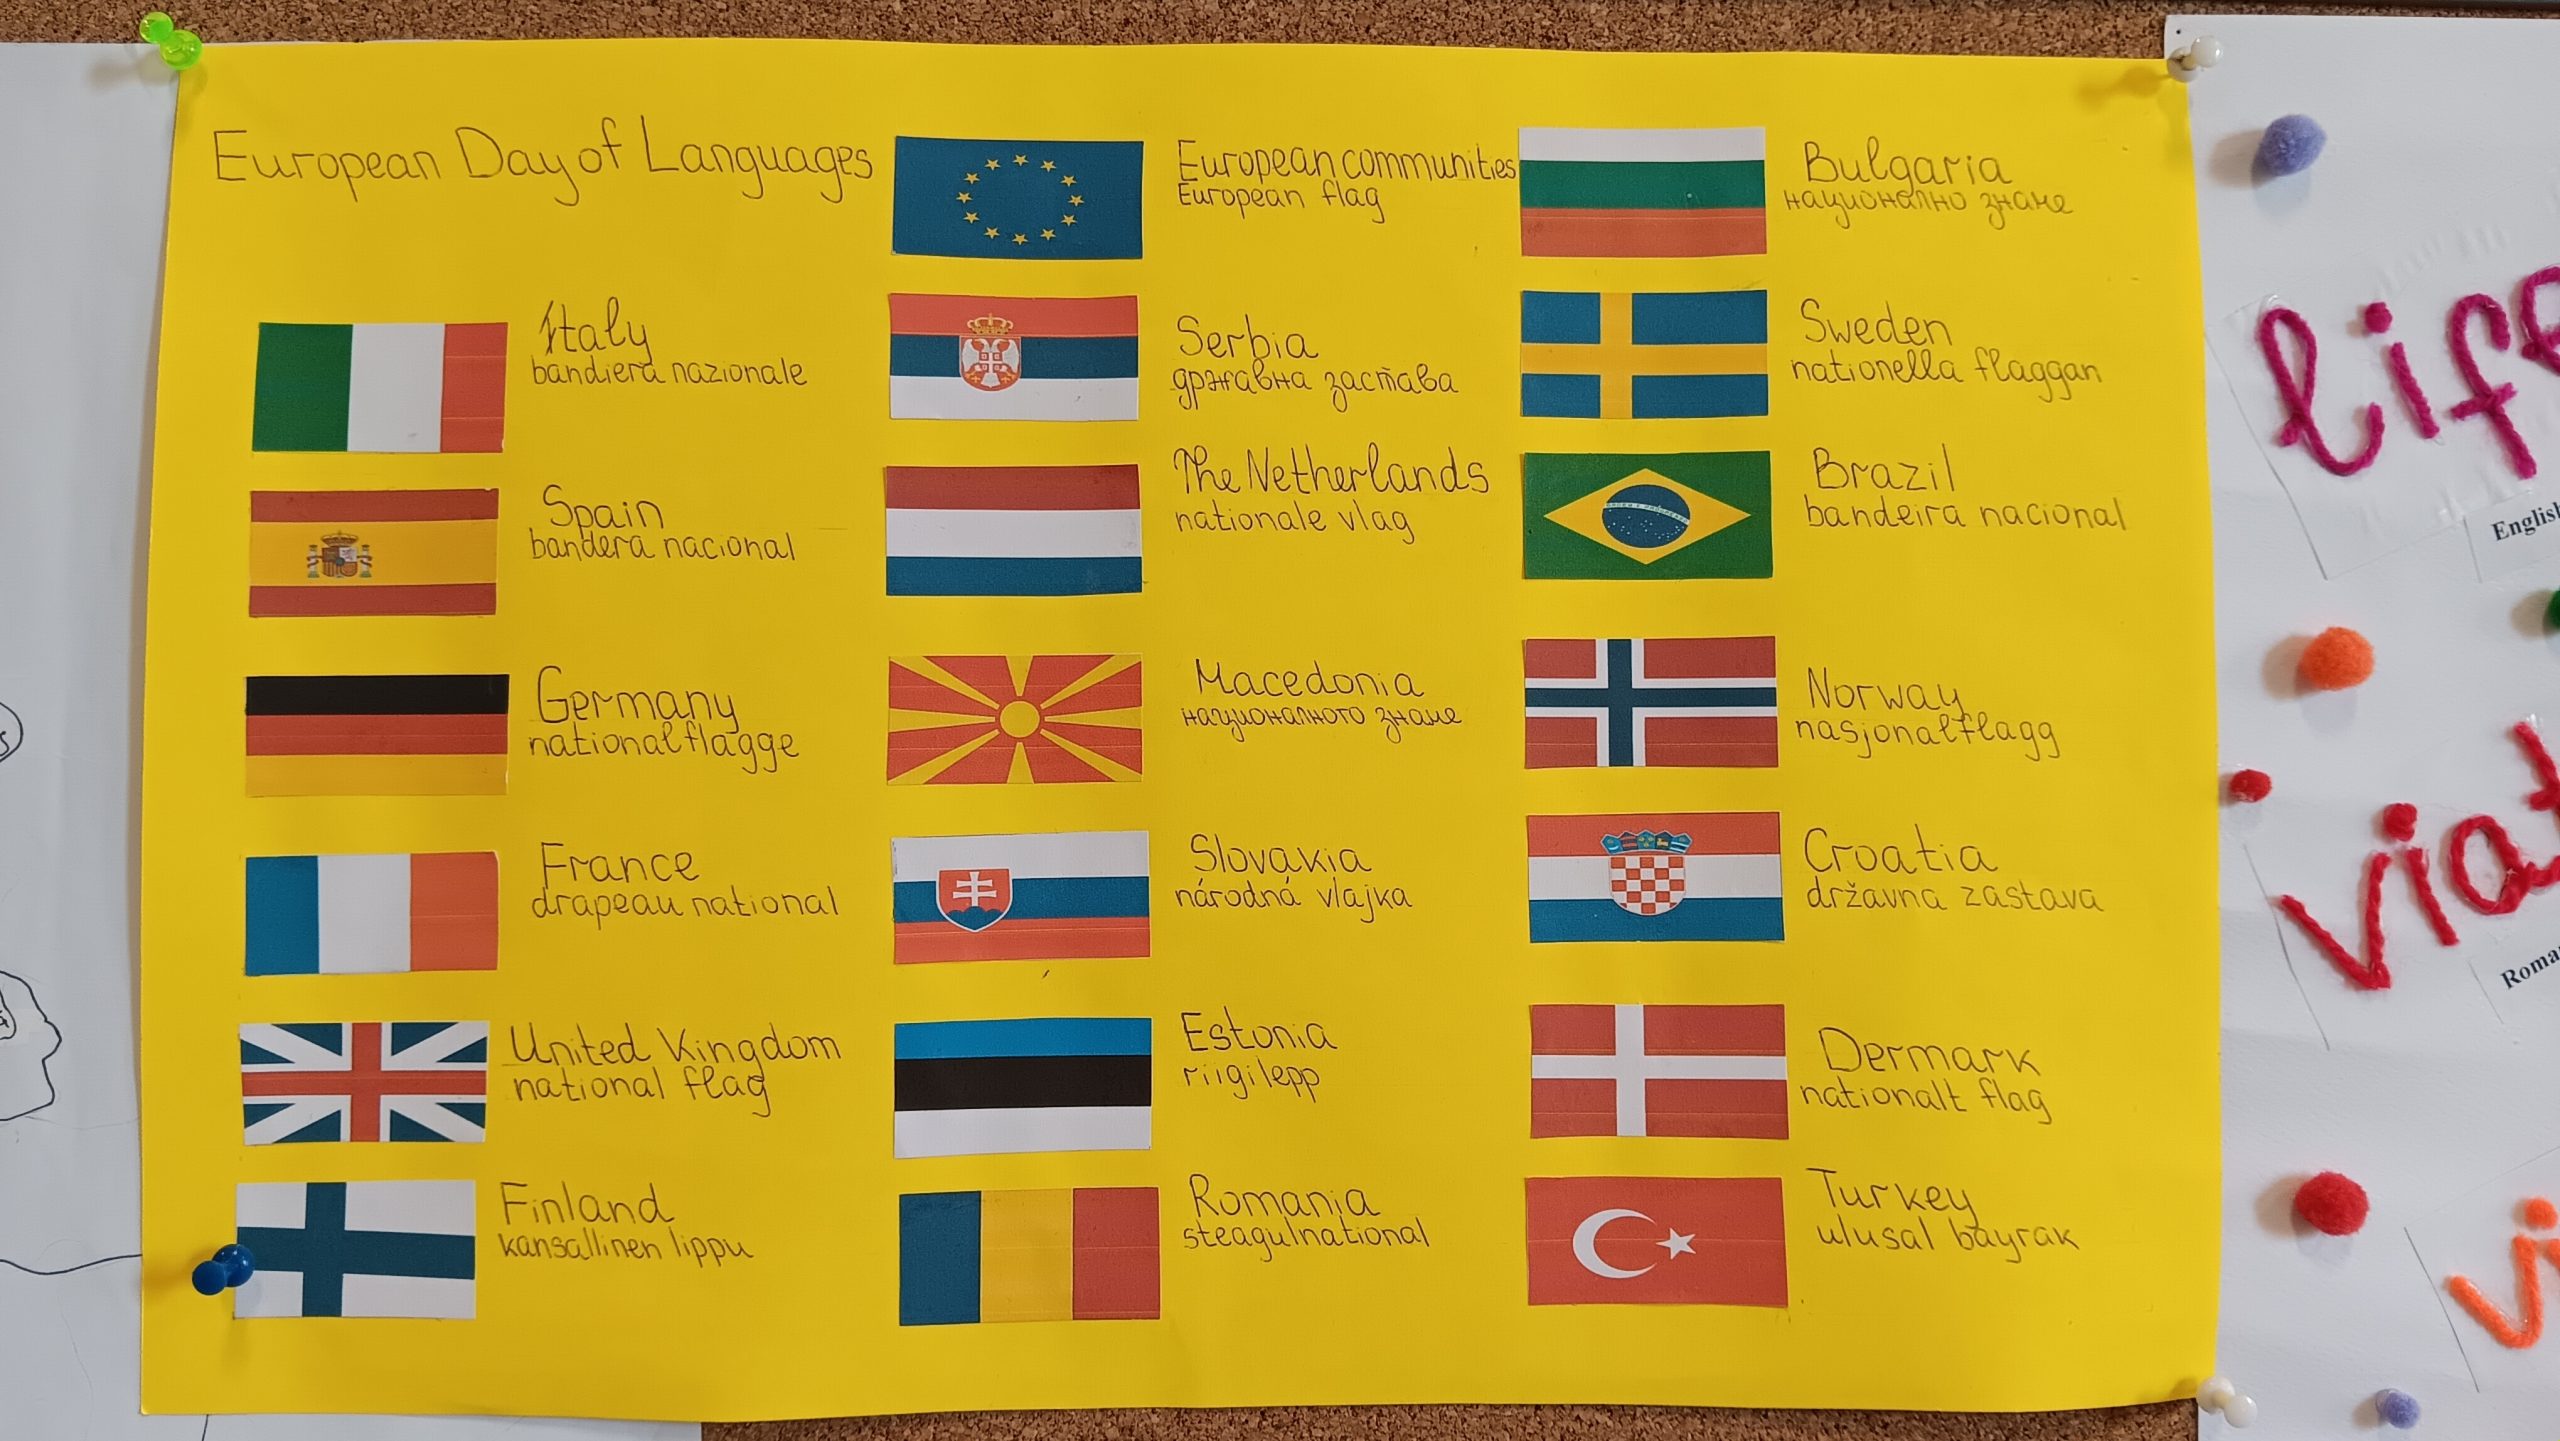 European Day of Languages
Italy
bandiera nazionale
Spain
bandera nacional
Germany
nationalflagge
France
drapeau national
United Kingdom
national flag
Finland
kansallinen lippu
European communities
European flag
Serbia
државна застава
The Netherlands
nationale vlag
Macedonia
националното знаме
Slovakia
národná vlajka
Estonia
riigilepp
Romania
steagul national
Bulgaria
национално знаме
Sweden
nationella flaggan
Brazil
bandeira nacional
Norway
nasjonalflagg
Croatia
državna zastava
Dermark
nationalt flag
Turkey
ulusal bayrak
life
English
viat
Roma
vi